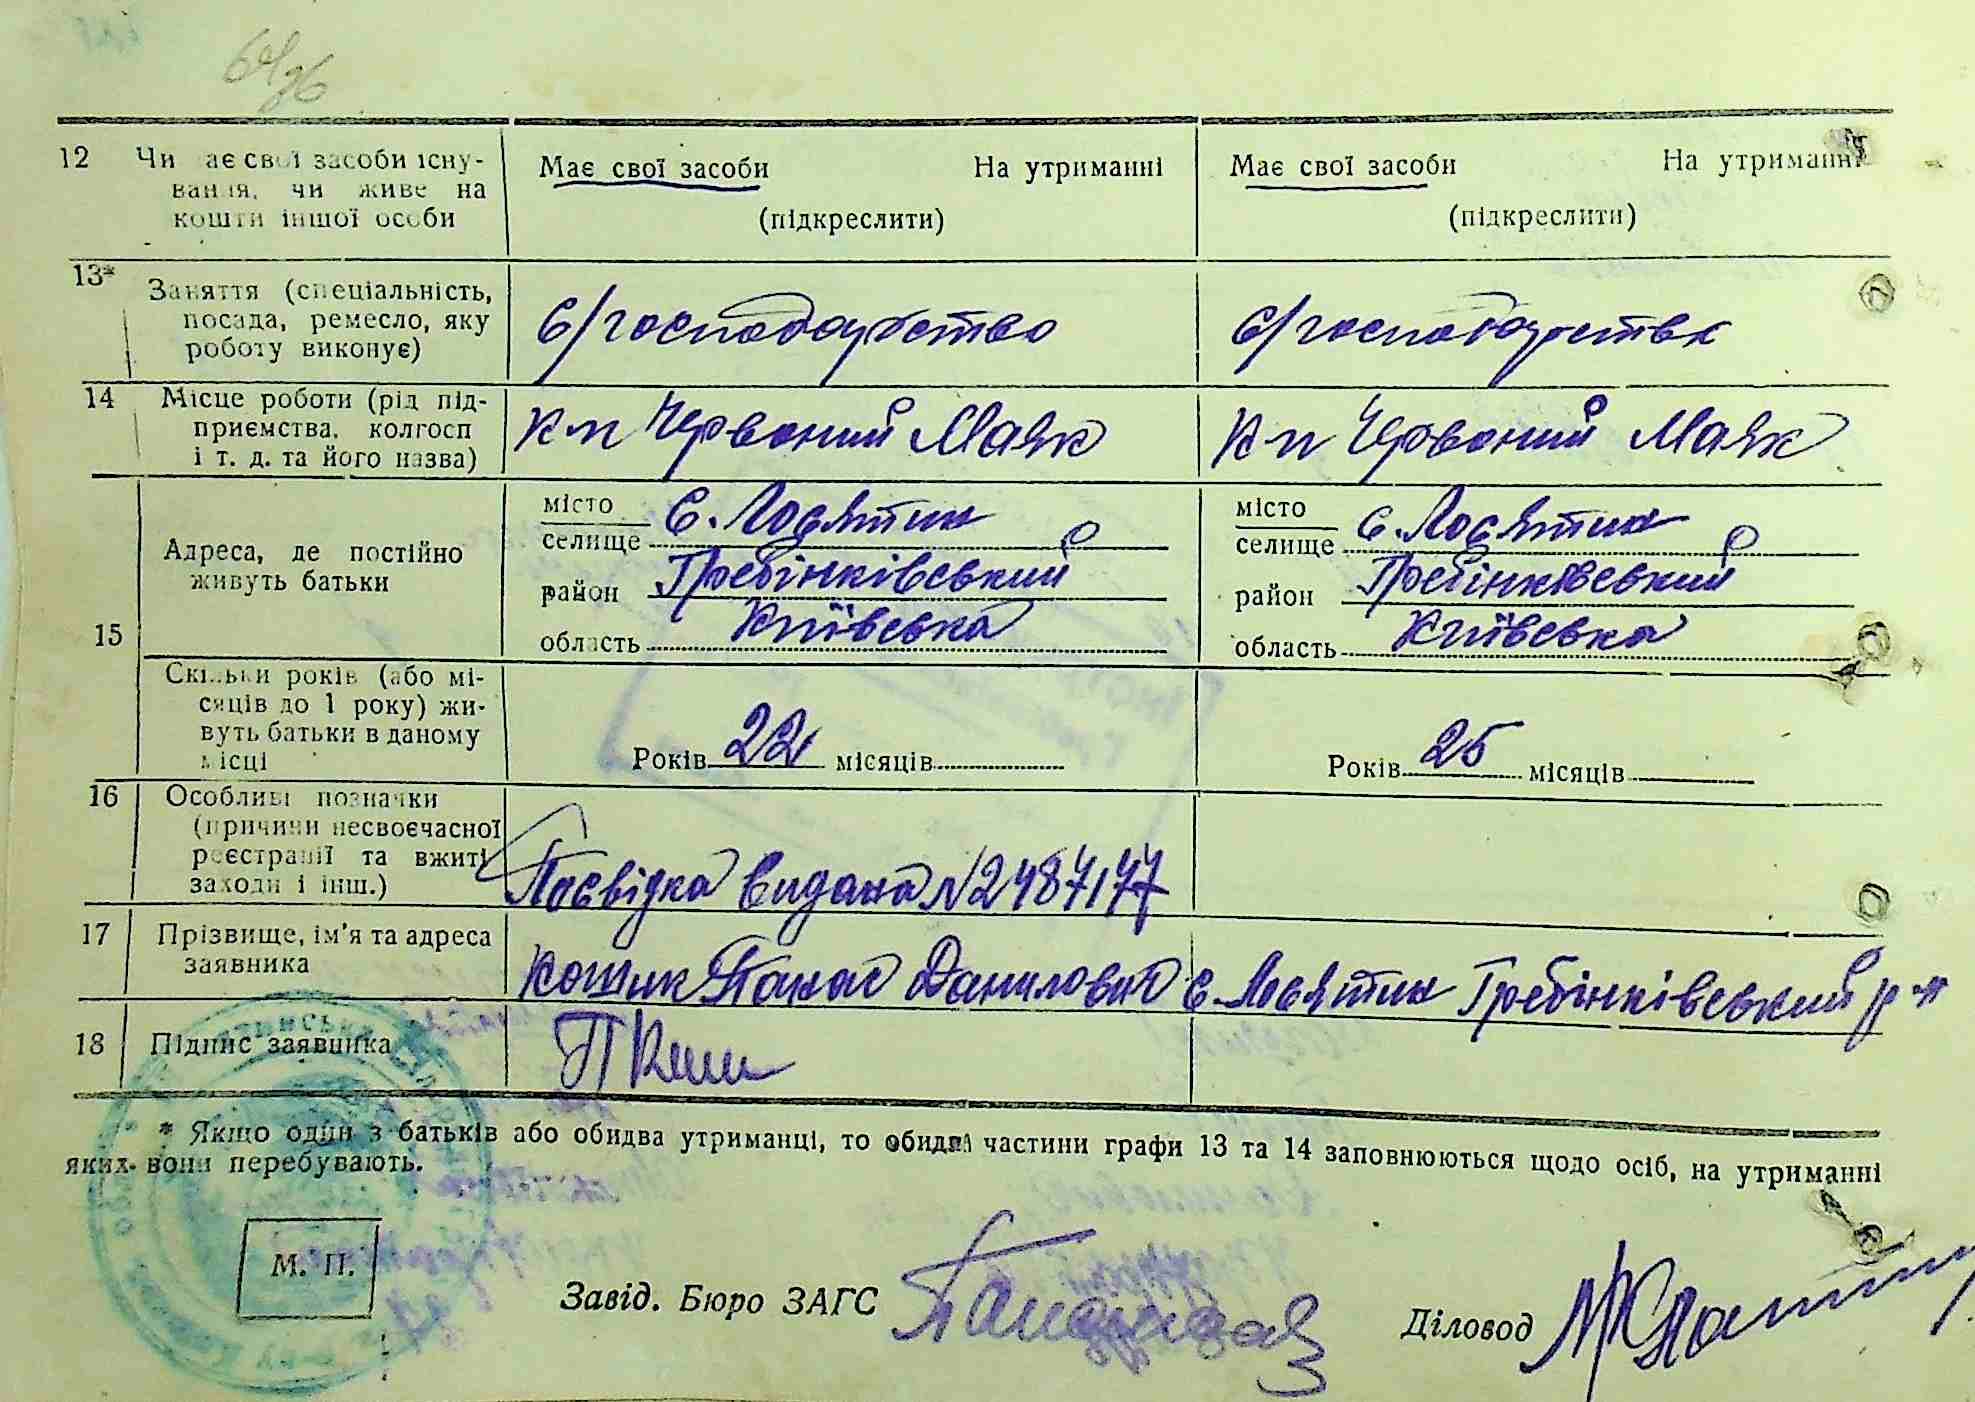 12 Чи має свої засоби існу- Має свої засоби На утриманні Має свої засоби На утриманні
вання, чи живе на
кошти іншої особи (підкреслити) (підкреслити)
13* Заняття (спеціальність,
посада, ремесло, яку с/господарство с/господарство
роботу виконує)
14 Місце роботи (рід під-
приємства, колгосп Кп Червоний Маяк Кп Червоний Маяк
і т. д. та його назва)
15 Адреса, де постійно
живуть батьки
місто
селище с. Лосятин
район Гребінківський
область Київська
місто
селище с. Лосятин
район Гребінківський
область Київська
Скільки років (або мі-
сяців до 1 року) жи-
вуть батьки в даному
місці
Років 22 місяців
Років 25 місяців
16 Особливі позначки
(причини несвоєчасної
реєстрації та вжиті
заходи і інш.)
Посвідка видана № 2487177
17 Прізвище, ім'я та адреса
заявника
Кошик Панас Данилович с. Лосятин Гребінківський р-н
18 Підпис заявника
* Якщо один з батьків або обидва утриманці, то обидві частини графи 13 та 14 заповнюються щодо осіб, на утриманні
яких вони перебувають.
М. П.
Завід. Бюро ЗАГС
Діловод